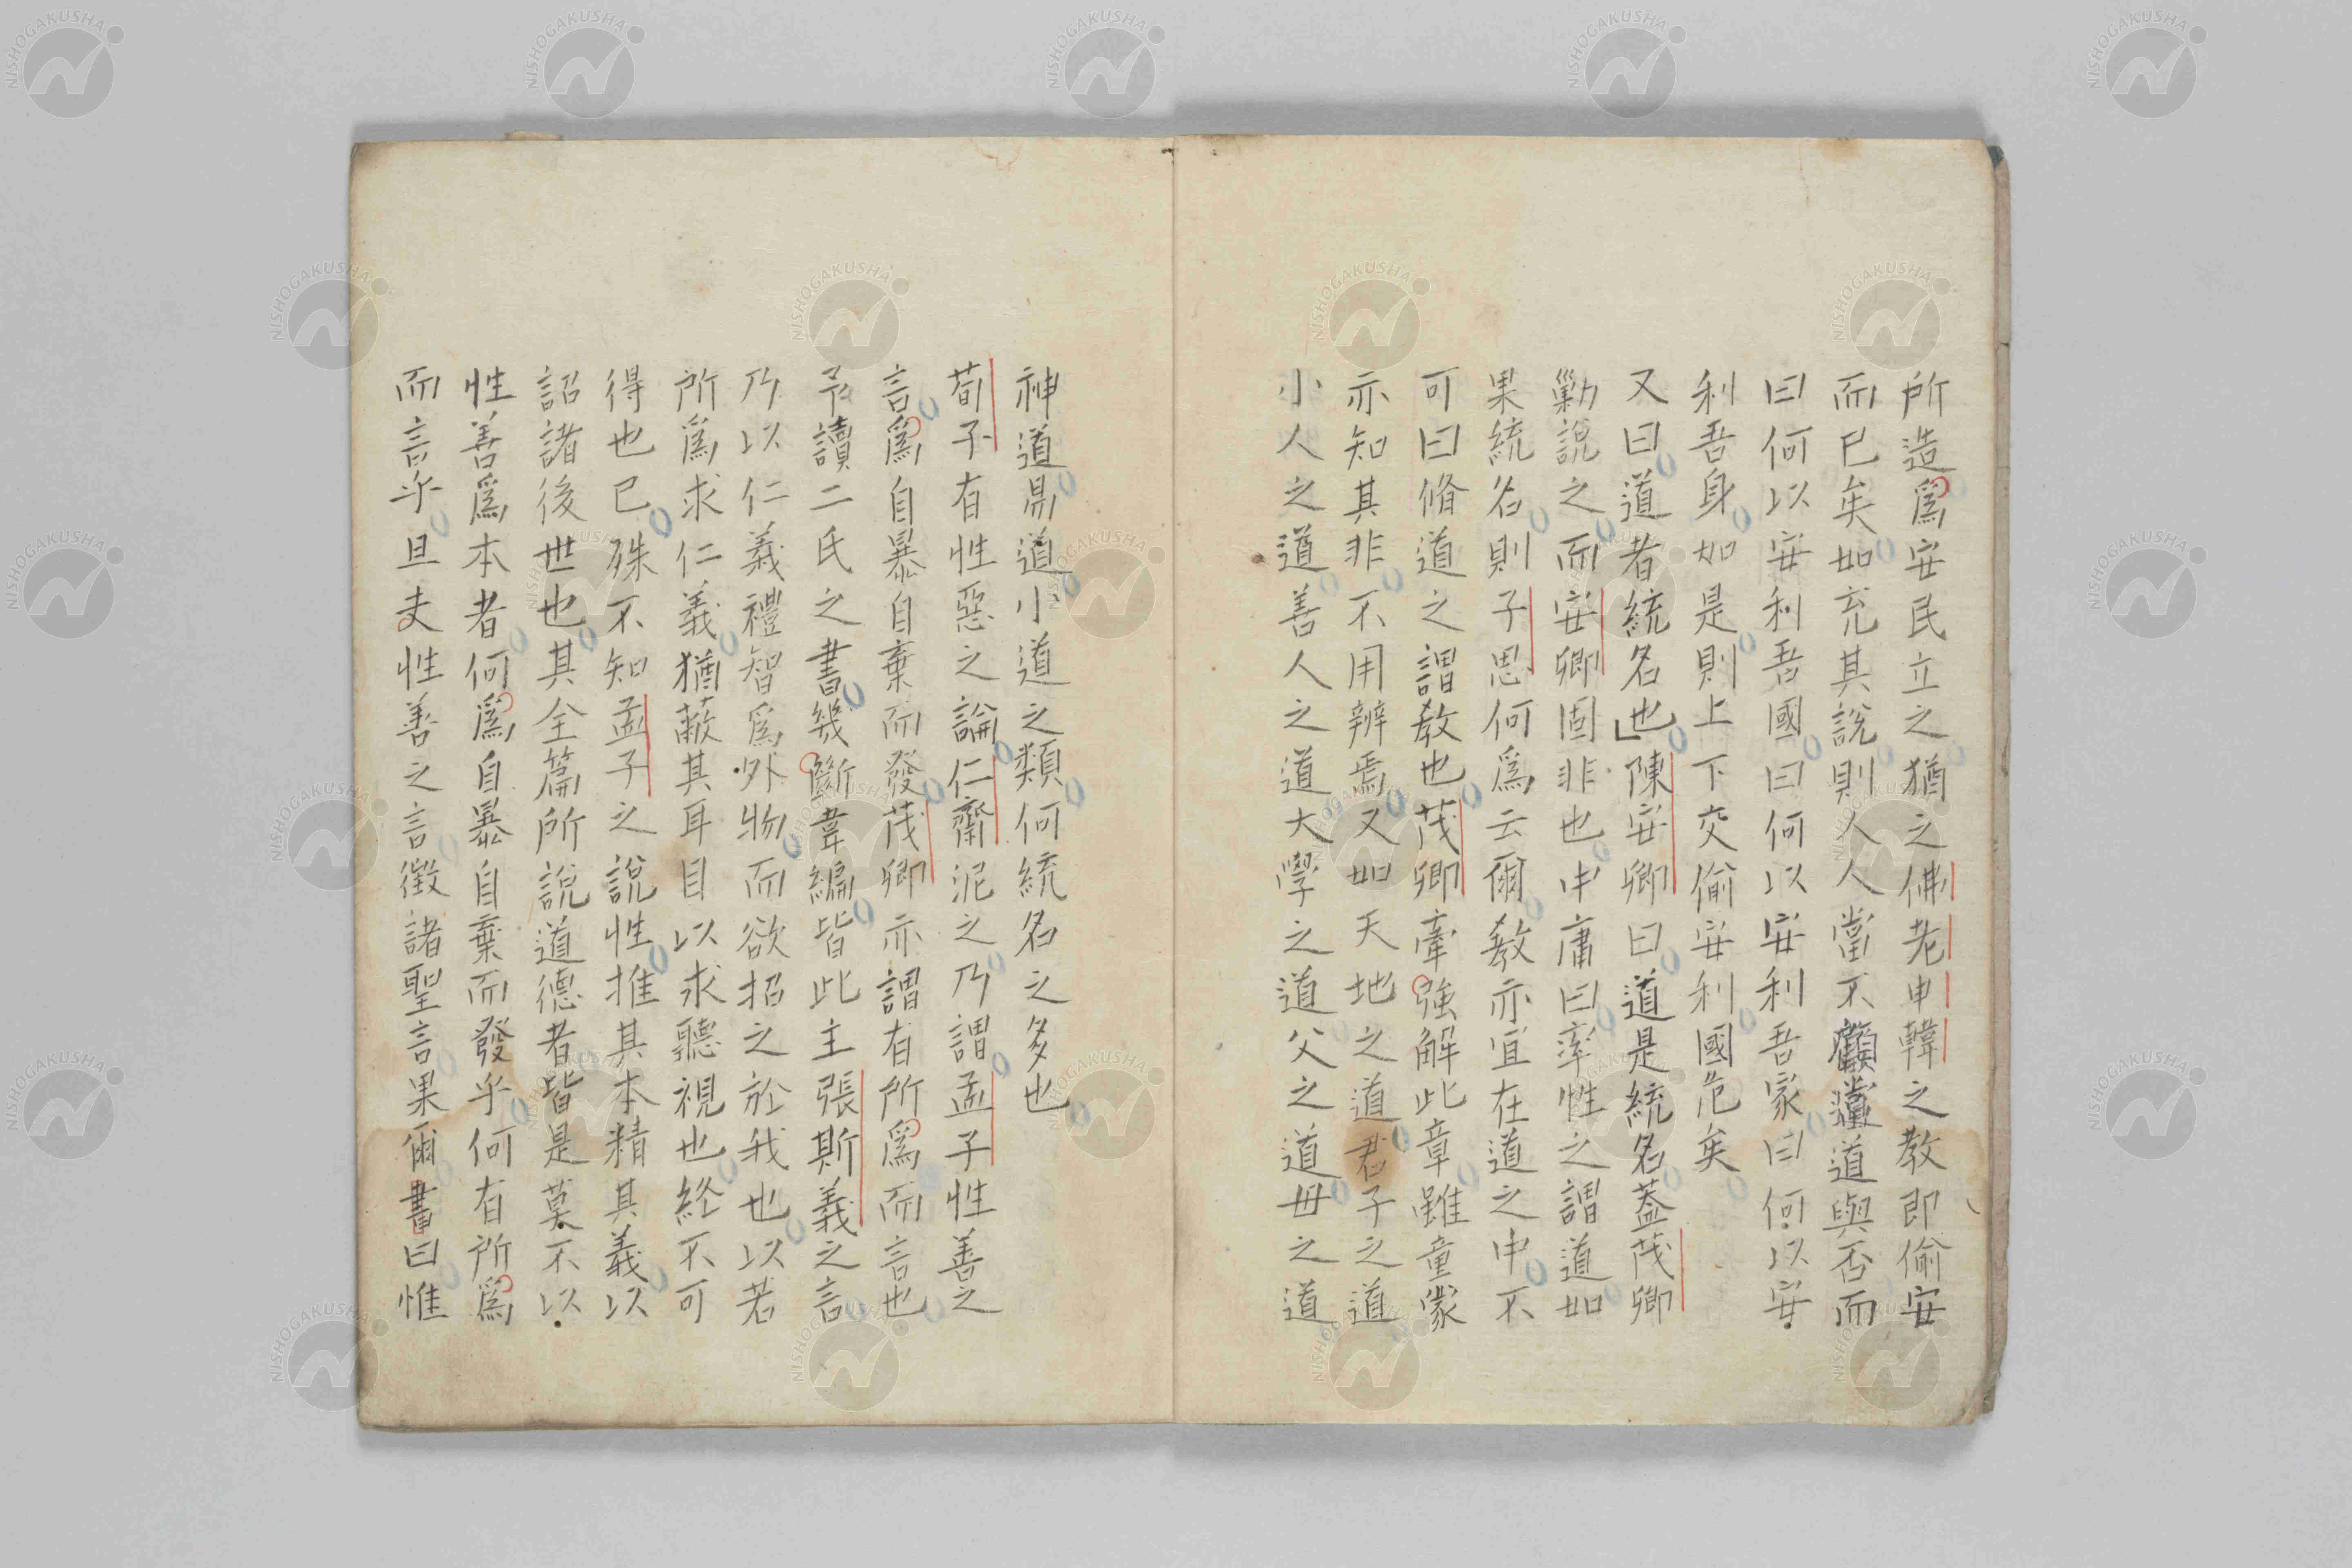 所造爲安民立之猶之佛老申韓之教即偷安
而已矣如充其說則人人當不顧黨道與否而
曰何以安利吾國曰何以安利吾家曰何以安
利吾身如是則上下交偷安利國危矣
又曰道者統名也陳安卿曰道是統名蓋茂卿
勦說之而安卿固非也中庸曰率性之謂道如
果統名則子思何爲云爾教亦宜在道之中不
可曰脩道之謂教也茂卿牽強解此章雖童蒙
亦知其非不用辨焉又如天地之道君子之道
小人之道善人之道大學之道父之道母之道
神道鼎道小道之類何統名之多也
荀子有性惡之論仁齋泥之乃謂孟子性善之
言爲自暴自棄而發茂卿亦謂有所爲而言也
予讀二氏之書幾斷韋編皆此主張斯義之言
乃以仁義禮智爲外物而欲招之於我也以若
所爲求仁義猶蔽其耳目以求聽視也終不可
得也已殊不知孟子之說性推其本精其義以
詔諸後世也其全篇所說道德者皆是莫不以
性善爲本者何爲自暴自棄而發乎何有所爲
而言乎且夫性善之言徵諸聖言果爾書曰惟
NISHOGAKUSHA